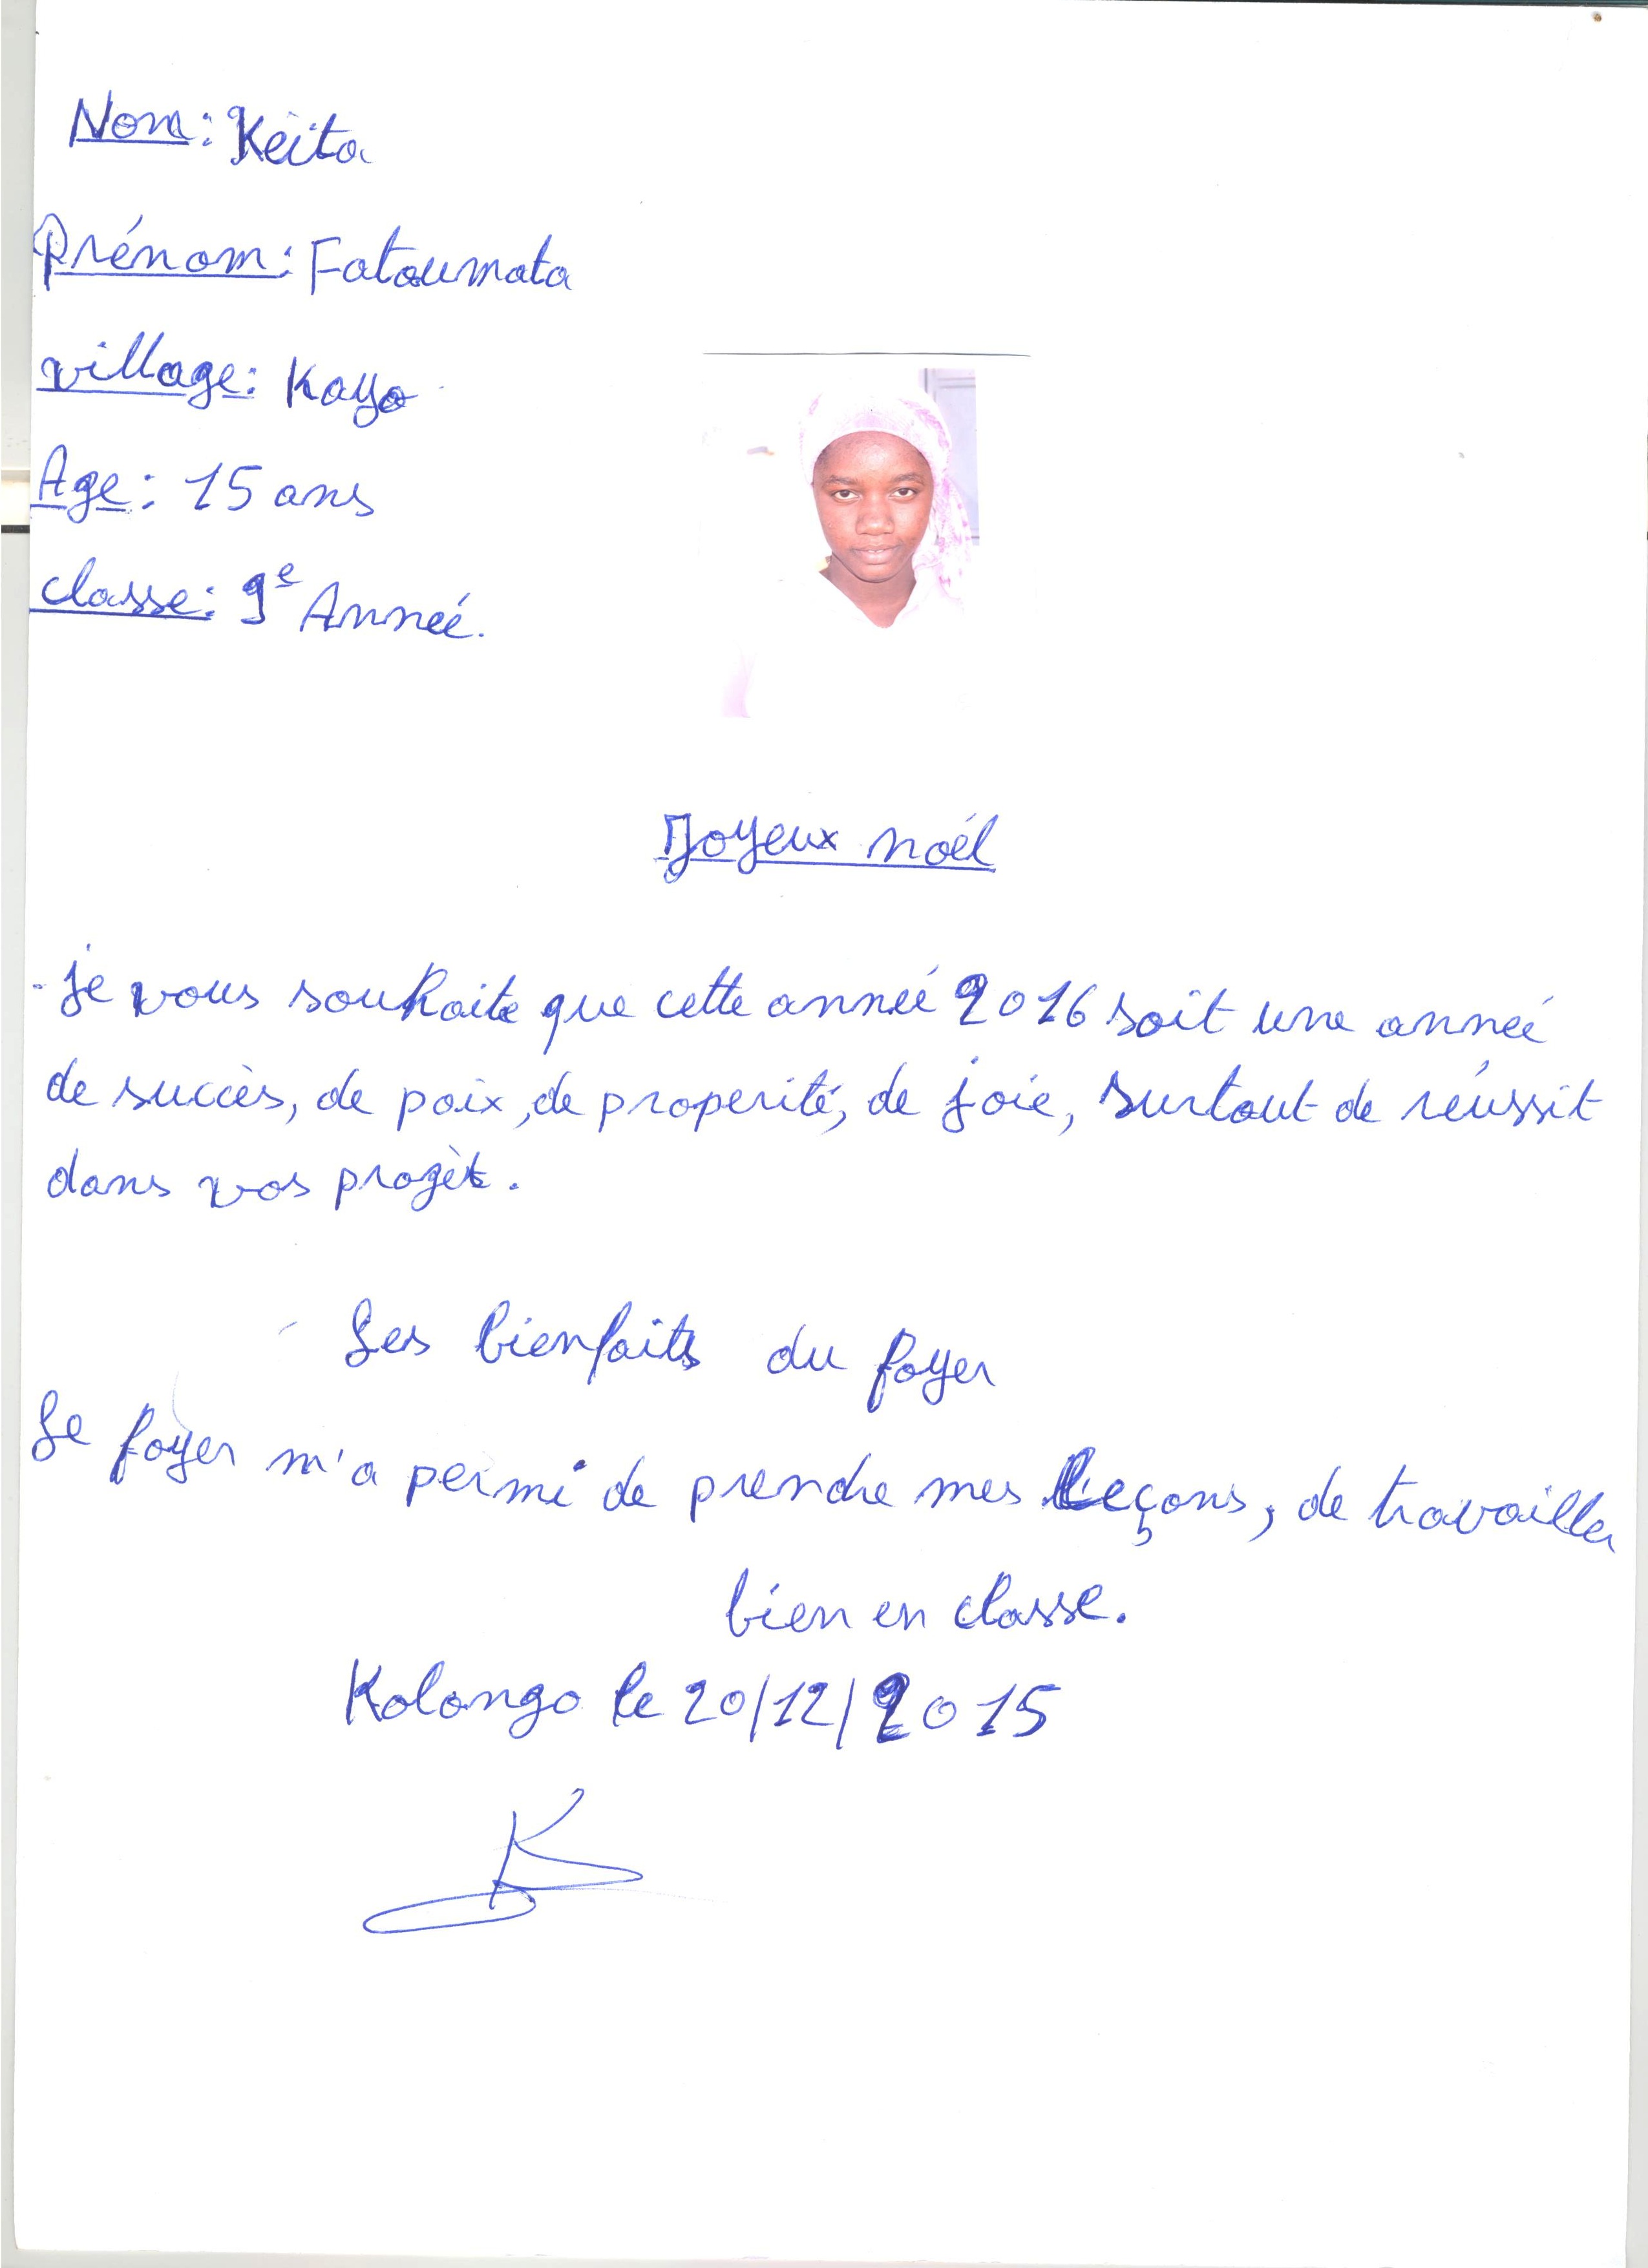 Nom: Keïta
Prénom: Fatoumata
village: Kayo
Age: 15 ans
classe: 9e Anneé.
Joyeux noél
- je vous souhaite que cette anneé 2016 soit une anneé
de succès, de paix, de properité, de joie, surtout de réussit
dans vos progèt.
Les bienfaits du foyer
Le foyer m'a permi de prendre mes leçons, de travailler
bien en classe.
Kolongo le 20/12/2015